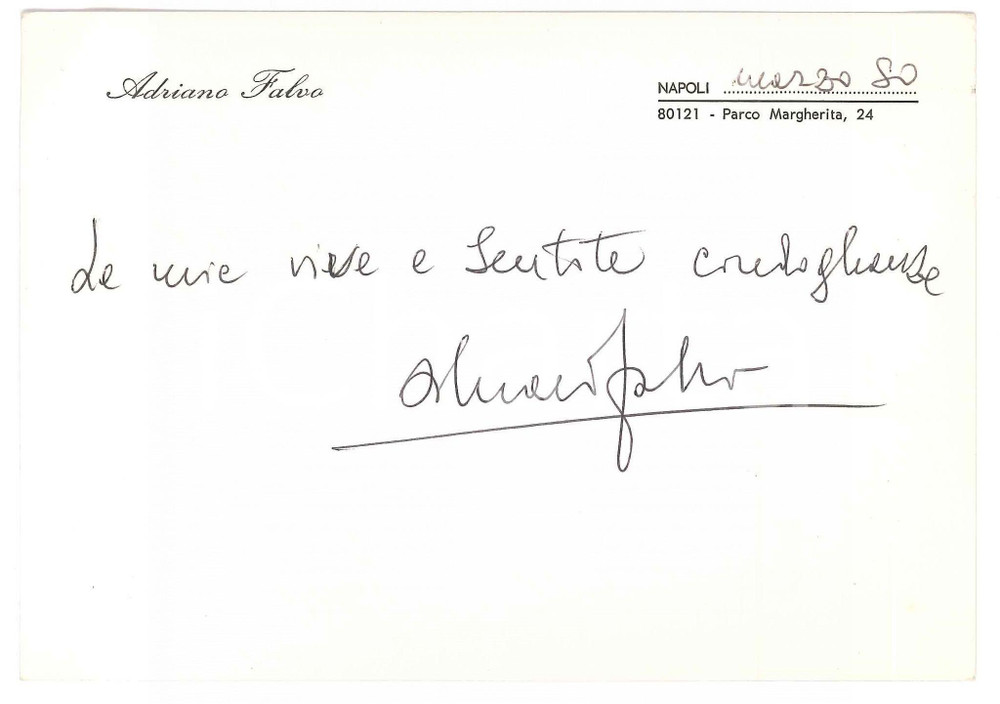 Adriano Falvo
NAPOLI marzo 80
80121 - Parco Margherita, 24
Le mie vive e sentite condoglianze
Adriano Falvo